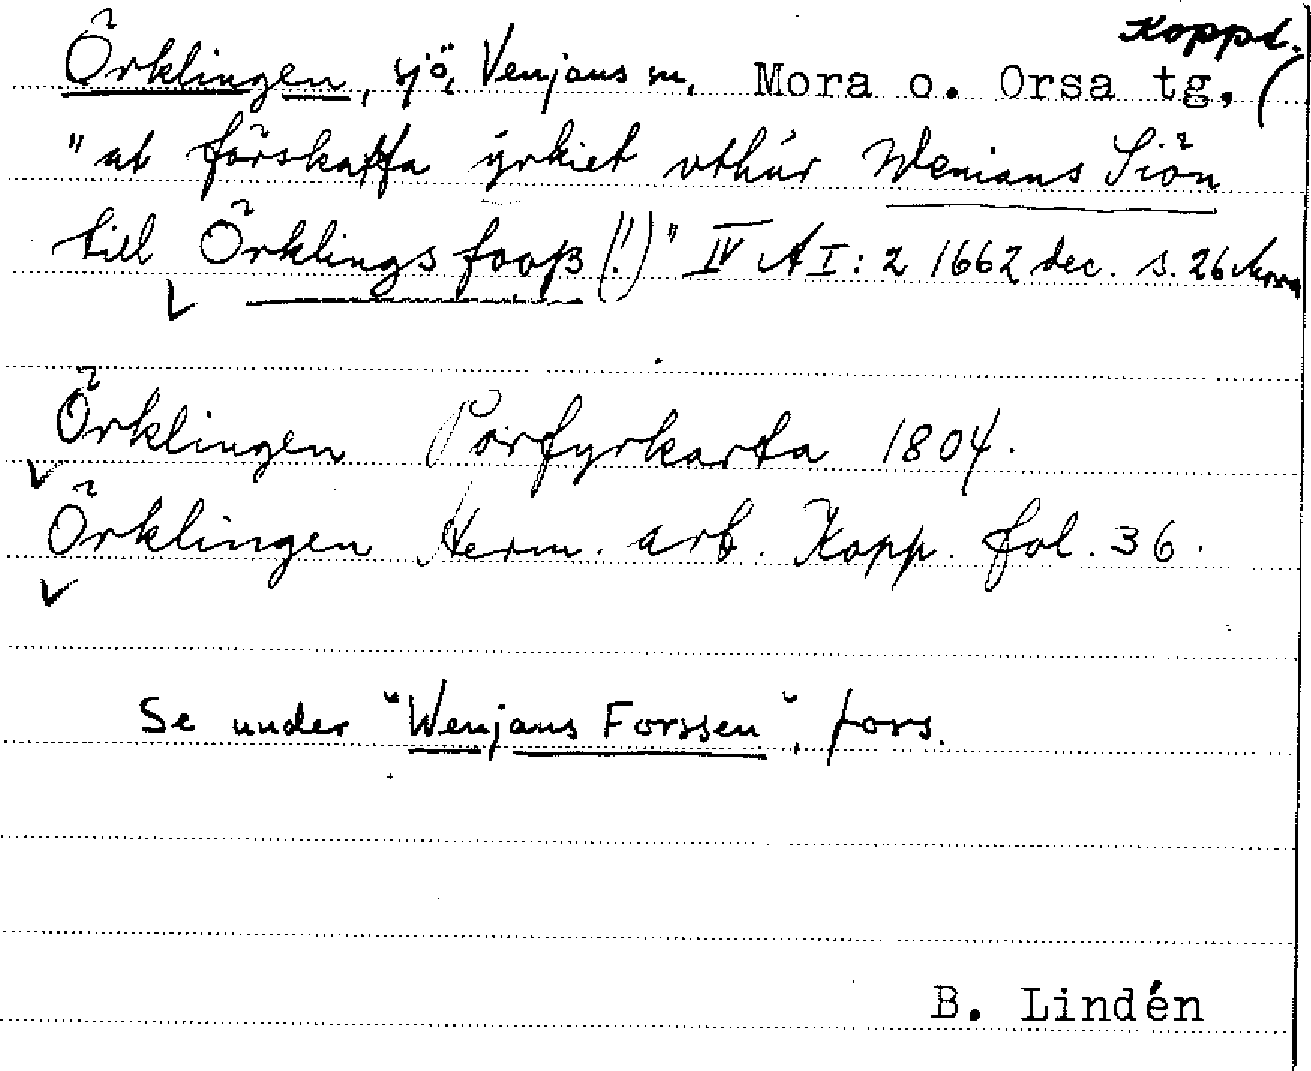 Koppd.
Örklingen, sjö, Venjans sn. Mora o. Orsa tg.
"at förskaffa ýrkiet vthúr Wenians Siön
till Örklings fooß (!)" IV A I: 2 1662 dec. s. 26 Mora
Örklingen Porfyrkarta 1804.
Örklingen Herm. arb. Kopp. fol. 36.
Se under "Wenjans Forssen", fors.
B. Lindén